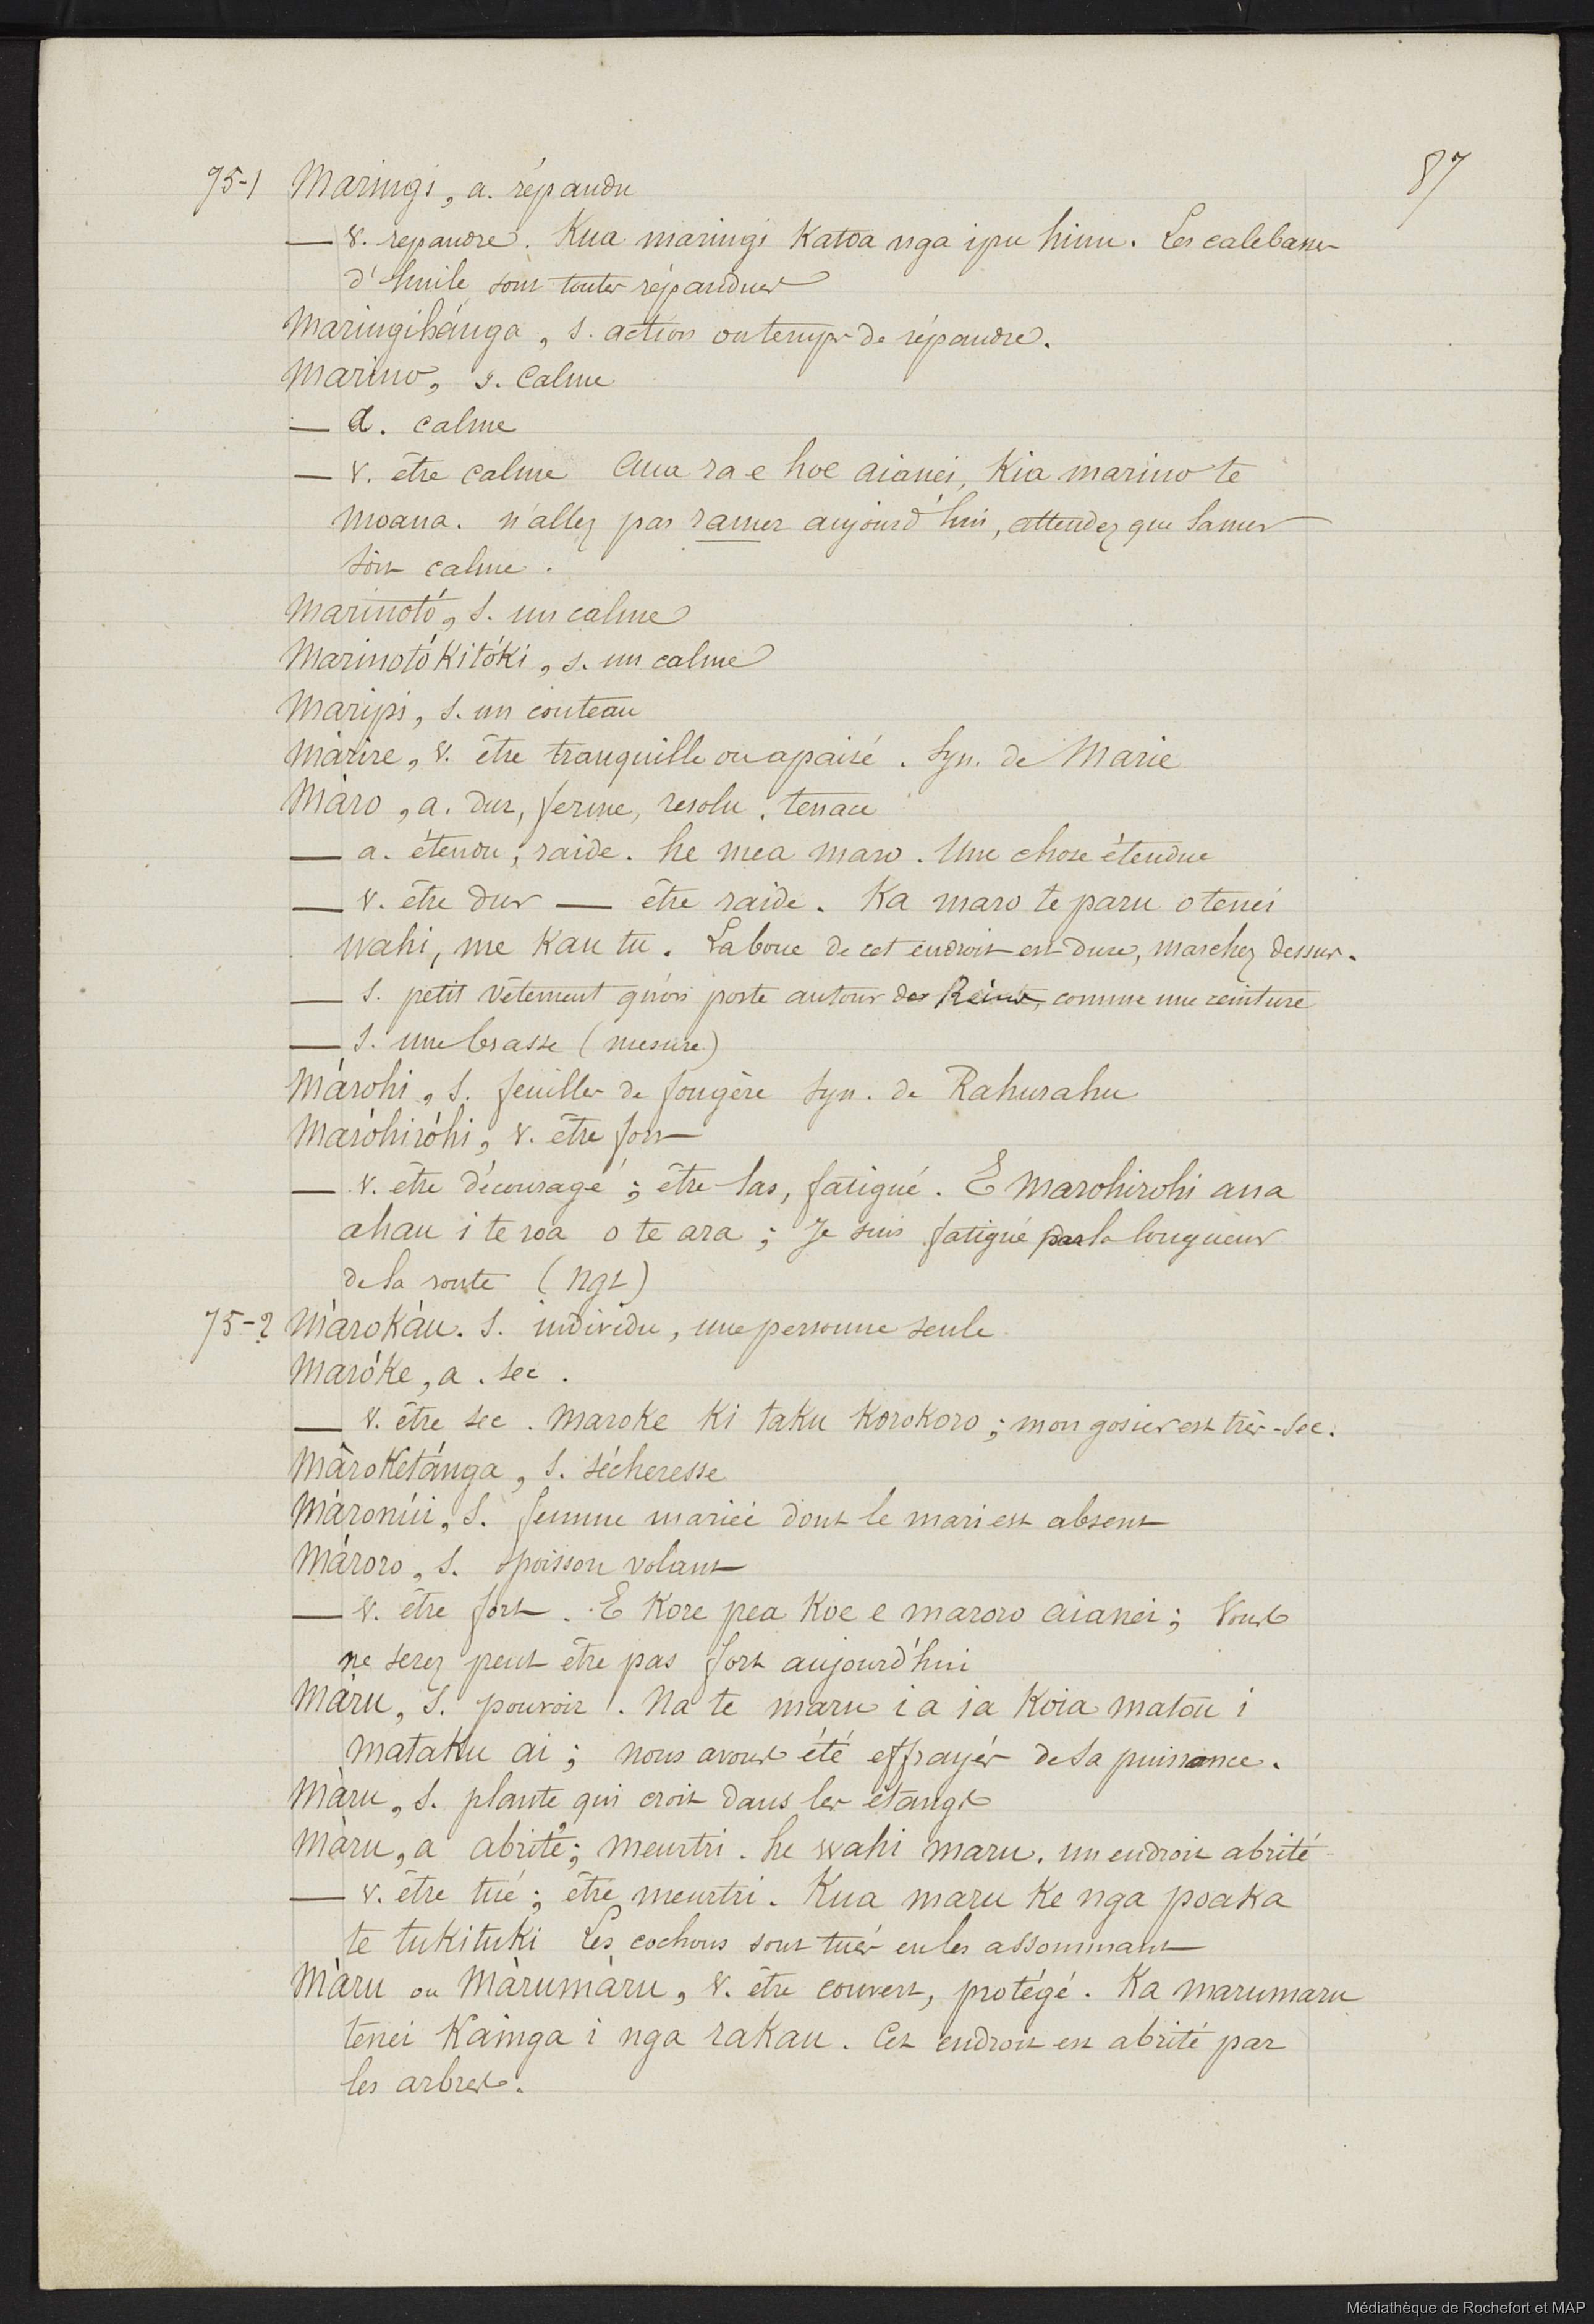 87
75-1 Maringi, a. répandu
— v. repandre. Kua maringi katoa nga ipu hinu. Les calebasses
d'huile sont toutes répandues
Maringihánga, s. action ou temps de répandre.
Marino, s. Calme
— a. calme
— v. être calme Aua ra e hoe aianei, Kia marino te
moana. n'allez pas ramer aujourd'hui, attendez que la mer
soit calme.
Marinotó, s. un calme
Marinotókitóki, s. un calme
Maripi, s. un couteau
Màrire, v. être tranquille ou apaisé. Syn. de Marie
Màro, a. dur, ferme, resolu, tenace
— a. étendu; raide. he mea maro. Une chose étendue
— v. être dur — être raide. Ka maro te paru o tenei
wahi, me kau tu. La boue de cet endroit est dure, marchez dessus.
— s. petit vêtement qu'on porte autour des Reins, comme une ceinture
— s. une brasse (mesure)
Márohi, s. feuilles de fougère Syn. de Rahurahu
Maróhiróhi, v. être fort
— v. être découragé; être las, fatigué. E marohirohi ana
ahau i te roa o te ara; Je suis fatigué par la longueur
de la route (ngt)
75-2 Màrokàu. s. individu, une personne seule
Maróke, a. sec.
— v. être sec. Maroke ki taku korokoro; mon gosier est très-sec.
Màroketánga, s. sécheresse
Màronúi, s. femme mariée dont le mari est absent
Màroro, s. poisson volant
— v. être fort. E kore pea koe e maroro aianei; Vous
ne serez peut être pas fort aujourd'hui
Màru, s. pouvoir. Na te maru i a ia koia matou i
mataku ai; nous avons été effrayés de sa puissance.
Màru, s. plante qui croit dans les étangs
Màru, a abrité; meurtri. he wahi maru. un endroit abrité
— v. être tué; être meurtri. Kua maru ke nga poaka
te tukituki Les cochons sont tués en les assommant
Màru ou Màrumàru, v. être couvert, protégé. Ka marumaru
tenei Kainga i nga rakau. Cet endroit est abrité par
les arbres.
Médiathèque de Rochefort et MAP